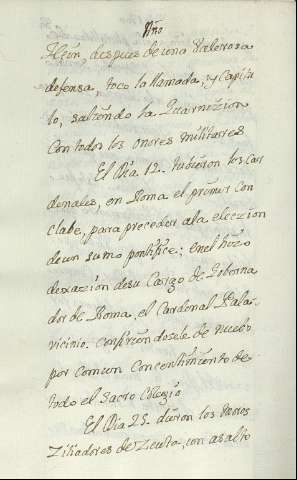 Año
Leon, despues de una Valerosa
defensa, toco la llamada, y Capitu
lo, saliendo la Guarnizion
con todos los onores militarres
El Dia 12. tubieron los Car
denales, en Roma el primer con
clabe, para proceder ala elezion
de un sumo pontifice; en el hizo
dexazion de su Cargo de Goberna
dor de Roma, el Cardenal Pala
vicinio. confirendosele de nuebo
por comun concentimiento de
todo el Sacro Colegio
El Dia 25. dieron los
Zitiadores de Zeuta, un asalto